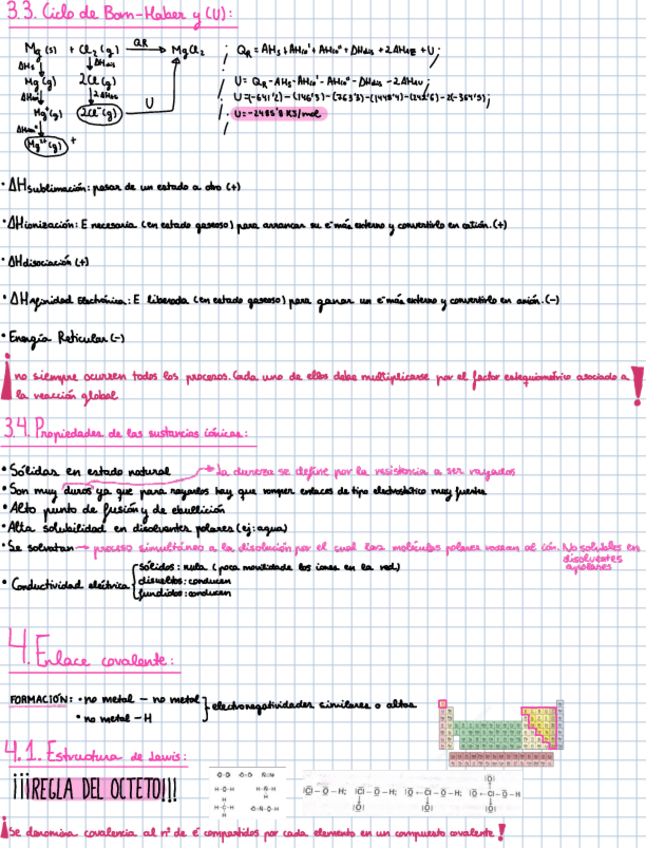 3.3. Ciclo de Born-Haber y (U):
Mg (s) + Cl₂ (g) QR MgCl₂ ; QR = ΔHs + ΔHio' + ΔHio'' + ΔHdis + 2ΔHAE + U;
ΔHs ΔHdis
Mg (g) 2Cl (g) U = QR - ΔHs - ΔHio' - ΔHio'' - ΔHdis - 2ΔHAE;
ΔHio' 2ΔHAE U
Mg⁺(g) 2Cl⁻(g) U = -2485'8 KJ/mol
ΔHio''
Mg²⁺(g) +
• ΔHsublimación: pasar de un estado a otro (+)
• ΔHionización: E necesaria (en estado gaseoso) para arrancar su e⁻ más externo y convertirlo en catión. (+)
• ΔHdisociación (+)
• ΔHafinidad Electrónica: E liberada (en estado gaseoso) para ganar un e⁻ más externo y convertirlo en anión. (-)
• Energía Reticular (-)
¡no siempre ocurren todos los procesos. Cada uno de ellos debe multiplicarse por el factor estequiométrico asociado a
la reacción global !
3.4. Propiedades de las sustancias iónicas:
• Sólidas en estado natural → La dureza se define por la resistencia a ser rayados
• Son muy duros ya que para rayarlos hay que romper enlaces de tipo electrostático muy fuertes
• Alto punto de fusión y de ebullición
• Alta solubilidad en disolventes polares (ej: agua)
• Se solvatan → proceso simultáneo a la disolución por el cual las moléculas polares rodean al ión. No solubles en
disolventes
apolares
sólidos: nula (poca movilidad de los iones en la red)
• Conductividad eléctrica disueltos: conducen
fundidos: conducen
4. Enlace covalente:
FORMACIÓN: • no metal - no metal electronegatividades similares o altas
• no metal - H
4.1. Estructura de Lewis:
¡¡¡REGLA DEL OCTETO!!!
¡Se denomina covalencia al nº de e⁻ compartidos por cada elemento en un compuesto covalente!